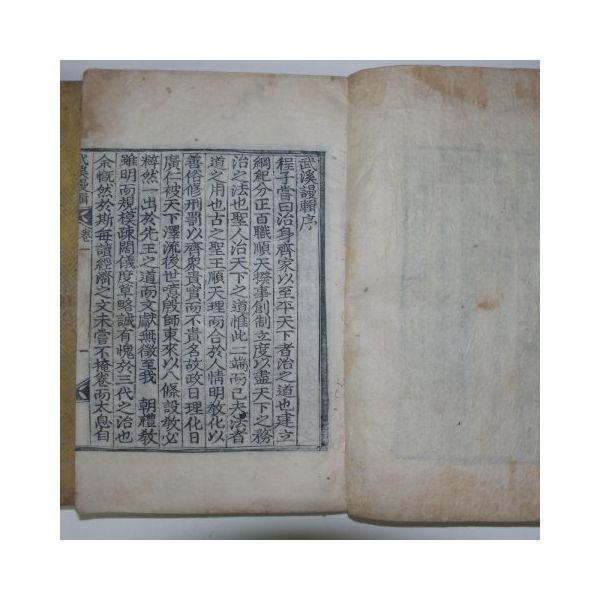 武溪謾輯序
程子嘗曰治身齊家以至平天下者治之道也建立
綱紀分正百職順天揆事創制立度以盡天下之務
治之法也聖人治天下之道惟此二端而已夫法者
道之用也古之聖王順天理而合於人情明敎化以
善俗修刑罰以齊衆貴實而不貴名故政日理化日
廣仁被天下澤流後世噫殷師東來以八條設敎必
粹然一出於先王之道而文獻無徵至我 朝禮敎
雖明而規模疎闊儀度草略誠有愧於三代之治也
余慨然於斯每讀經濟之文未嘗不掩卷而太息自
武溪謾輯 卷一 一